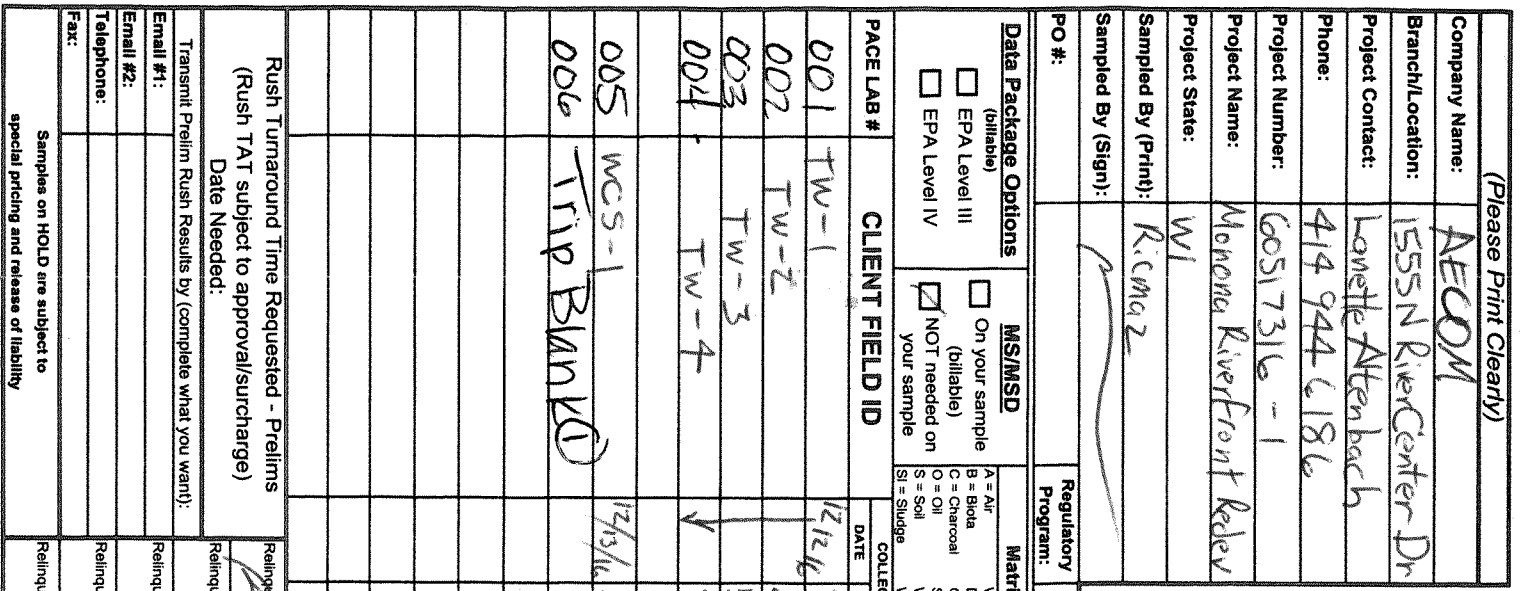 (Please Print Clearly)
Company Name: AECOM
Branch/Location: 1555 N RiverCenter Dr
Project Contact: Lanette Altenbach
Phone: 414 944 6186
Project Number: 60517316-1
Project Name: Monona Riverfront Redev
Project State: WI
Sampled By (Print): Ricmaz
Sampled By (Sign):
PO #:
Regulatory Program:
Data Package Options
(billable)
EPA Level III
EPA Level IV
MS/MSD
On your sample
(billable)
NOT needed on
your sample
Matri
A = Air
B = Biota
C = Charcoal
O = Oil
S = Soil
Sl = Sludge
COLLEC
PACE LAB # CLIENT FIELD ID DATE
001 TW-1 12/12/16
002 TW-2
003 TW-3
004 TW-4
005 WCS-1 12/13/16
006 Trip Blank ①
Rush Turnaround Time Requested - Prelims
(Rush TAT subject to approval/surcharge)
Date Needed:
Transmit Prelim Rush Results by (complete what you want):
Email #1:
Email #2:
Telephone:
Fax:
Samples on HOLD are subject to
special pricing and release of liability
Relinqu
Relinqu
Relinqu
Relinqu
Relinqu